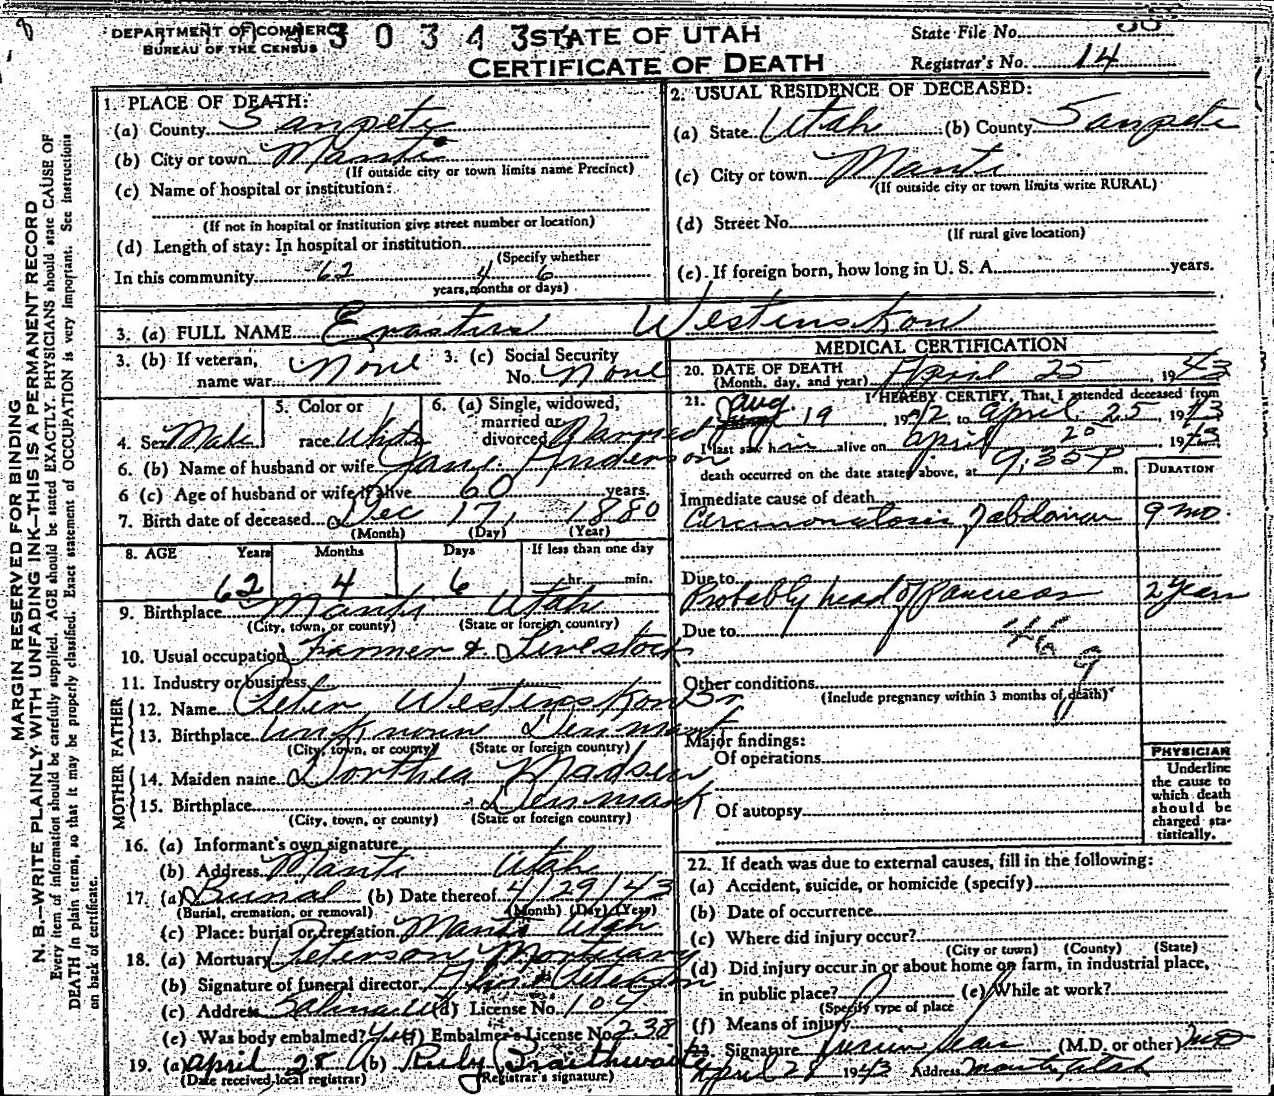 DEPARTMENT OF COMMERCE
BUREAU OF THE CENSUS
3 0 3 4 3
STATE OF UTAH
CERTIFICATE OF DEATH
State File No.
Registrar's No. 14
MARGIN RESERVED FOR BINDING
N. B.—WRITE PLAINLY WITH UNFADING INK—THIS IS A PERMANENT RECORD
Every item of information should be carefully supplied. AGE should be stated EXACTLY. PHYSICIANS should state CAUSE OF
DEATH in plain terms, so that it may be properly classified. Exact statement of OCCUPATION is very important. See instructions
on back of certificate.
1. PLACE OF DEATH:
(a) County Sanpete
(b) City or town Manti
(If outside city or town limits name Precinct)
(c) Name of hospital or institution:
(If not in hospital or institution give street number or location)
(d) Length of stay: In hospital or institution
(Specify whether
In this community 62 4 6
years, months or days)
2. USUAL RESIDENCE OF DECEASED:
(a) State Utah (b) County Sanpete
(c) City or town Manti
(If outside city or town limits write RURAL)
(d) Street No.
(If rural give location)
(e) If foreign born, how long in U. S. A. years.
3. (a) FULL NAME Erastus Westenskow
3. (b) If veteran, name war None
3. (c) Social Security No. None
4. Sex Male
5. Color or race White
6. (a) Single, widowed, married or divorced Married
6. (b) Name of husband or wife Jane Anderson
6 (c) Age of husband or wife if alive 60 years.
7. Birth date of deceased Dec 17, 1880
(Month) (Day) (Year)
8. AGE Years Months Days If less than one day
62 4 6 hr. min.
9. Birthplace Manti Utah
(City, town, or county) (State or foreign country)
10. Usual occupation Farmer & Livestock
11. Industry or business
FATHER
12. Name Peter Westenskow Sr
13. Birthplace unknown Denmark
(City, town, or county) (State or foreign country)
MOTHER
14. Maiden name Dorthea Madsen
15. Birthplace Denmark
(City, town, or county) (State or foreign country)
16. (a) Informant's own signature
(b) Address Manti Utah
17. (a) Burial (b) Date thereof 4/29/43
(Burial, cremation, or removal) (Month) (Day) (Year)
(c) Place: burial or cremation Manti Utah
18. (a) Mortuary Peterson Mortuary
(b) Signature of funeral director Peterson
(c) Address Salina (d) License No. 107
(e) Was body embalmed? Yes (f) Embalmer's License No. 238
19. (a) April 28 (b) Ruby Braithwaite
(Date received local registrar) (Registrar's signature)
MEDICAL CERTIFICATION
20. DATE OF DEATH
(Month, day, and year) April 25 1943
21. I HEREBY CERTIFY, That I attended deceased from
Aug. 19 1942, to April 25 1943
I last saw him alive on April 25 1943
death occurred on the date stated above, at 9:35 P m.
DURATION
Immediate cause of death
Carcinomatosis of abdomen 9 mo.
Due to
Probably head of Pancreas 2 years
Due to
46 g
Other conditions
(Include pregnancy within 3 months of death)
Major findings:
Of operations
Of autopsy
PHYSICIAN
Underline
the cause to
which death
should be
charged sta-
tistically.
22. If death was due to external causes, fill in the following:
(a) Accident, suicide, or homicide (specify)
(b) Date of occurrence
(c) Where did injury occur?
(City or town) (County) (State)
(d) Did injury occur in or about home on farm, in industrial place,
in public place? (e) While at work?
(Specify type of place
(f) Means of injury
23. Signature (M.D. or other) MD
April 28 1943 Address Manti, Utah